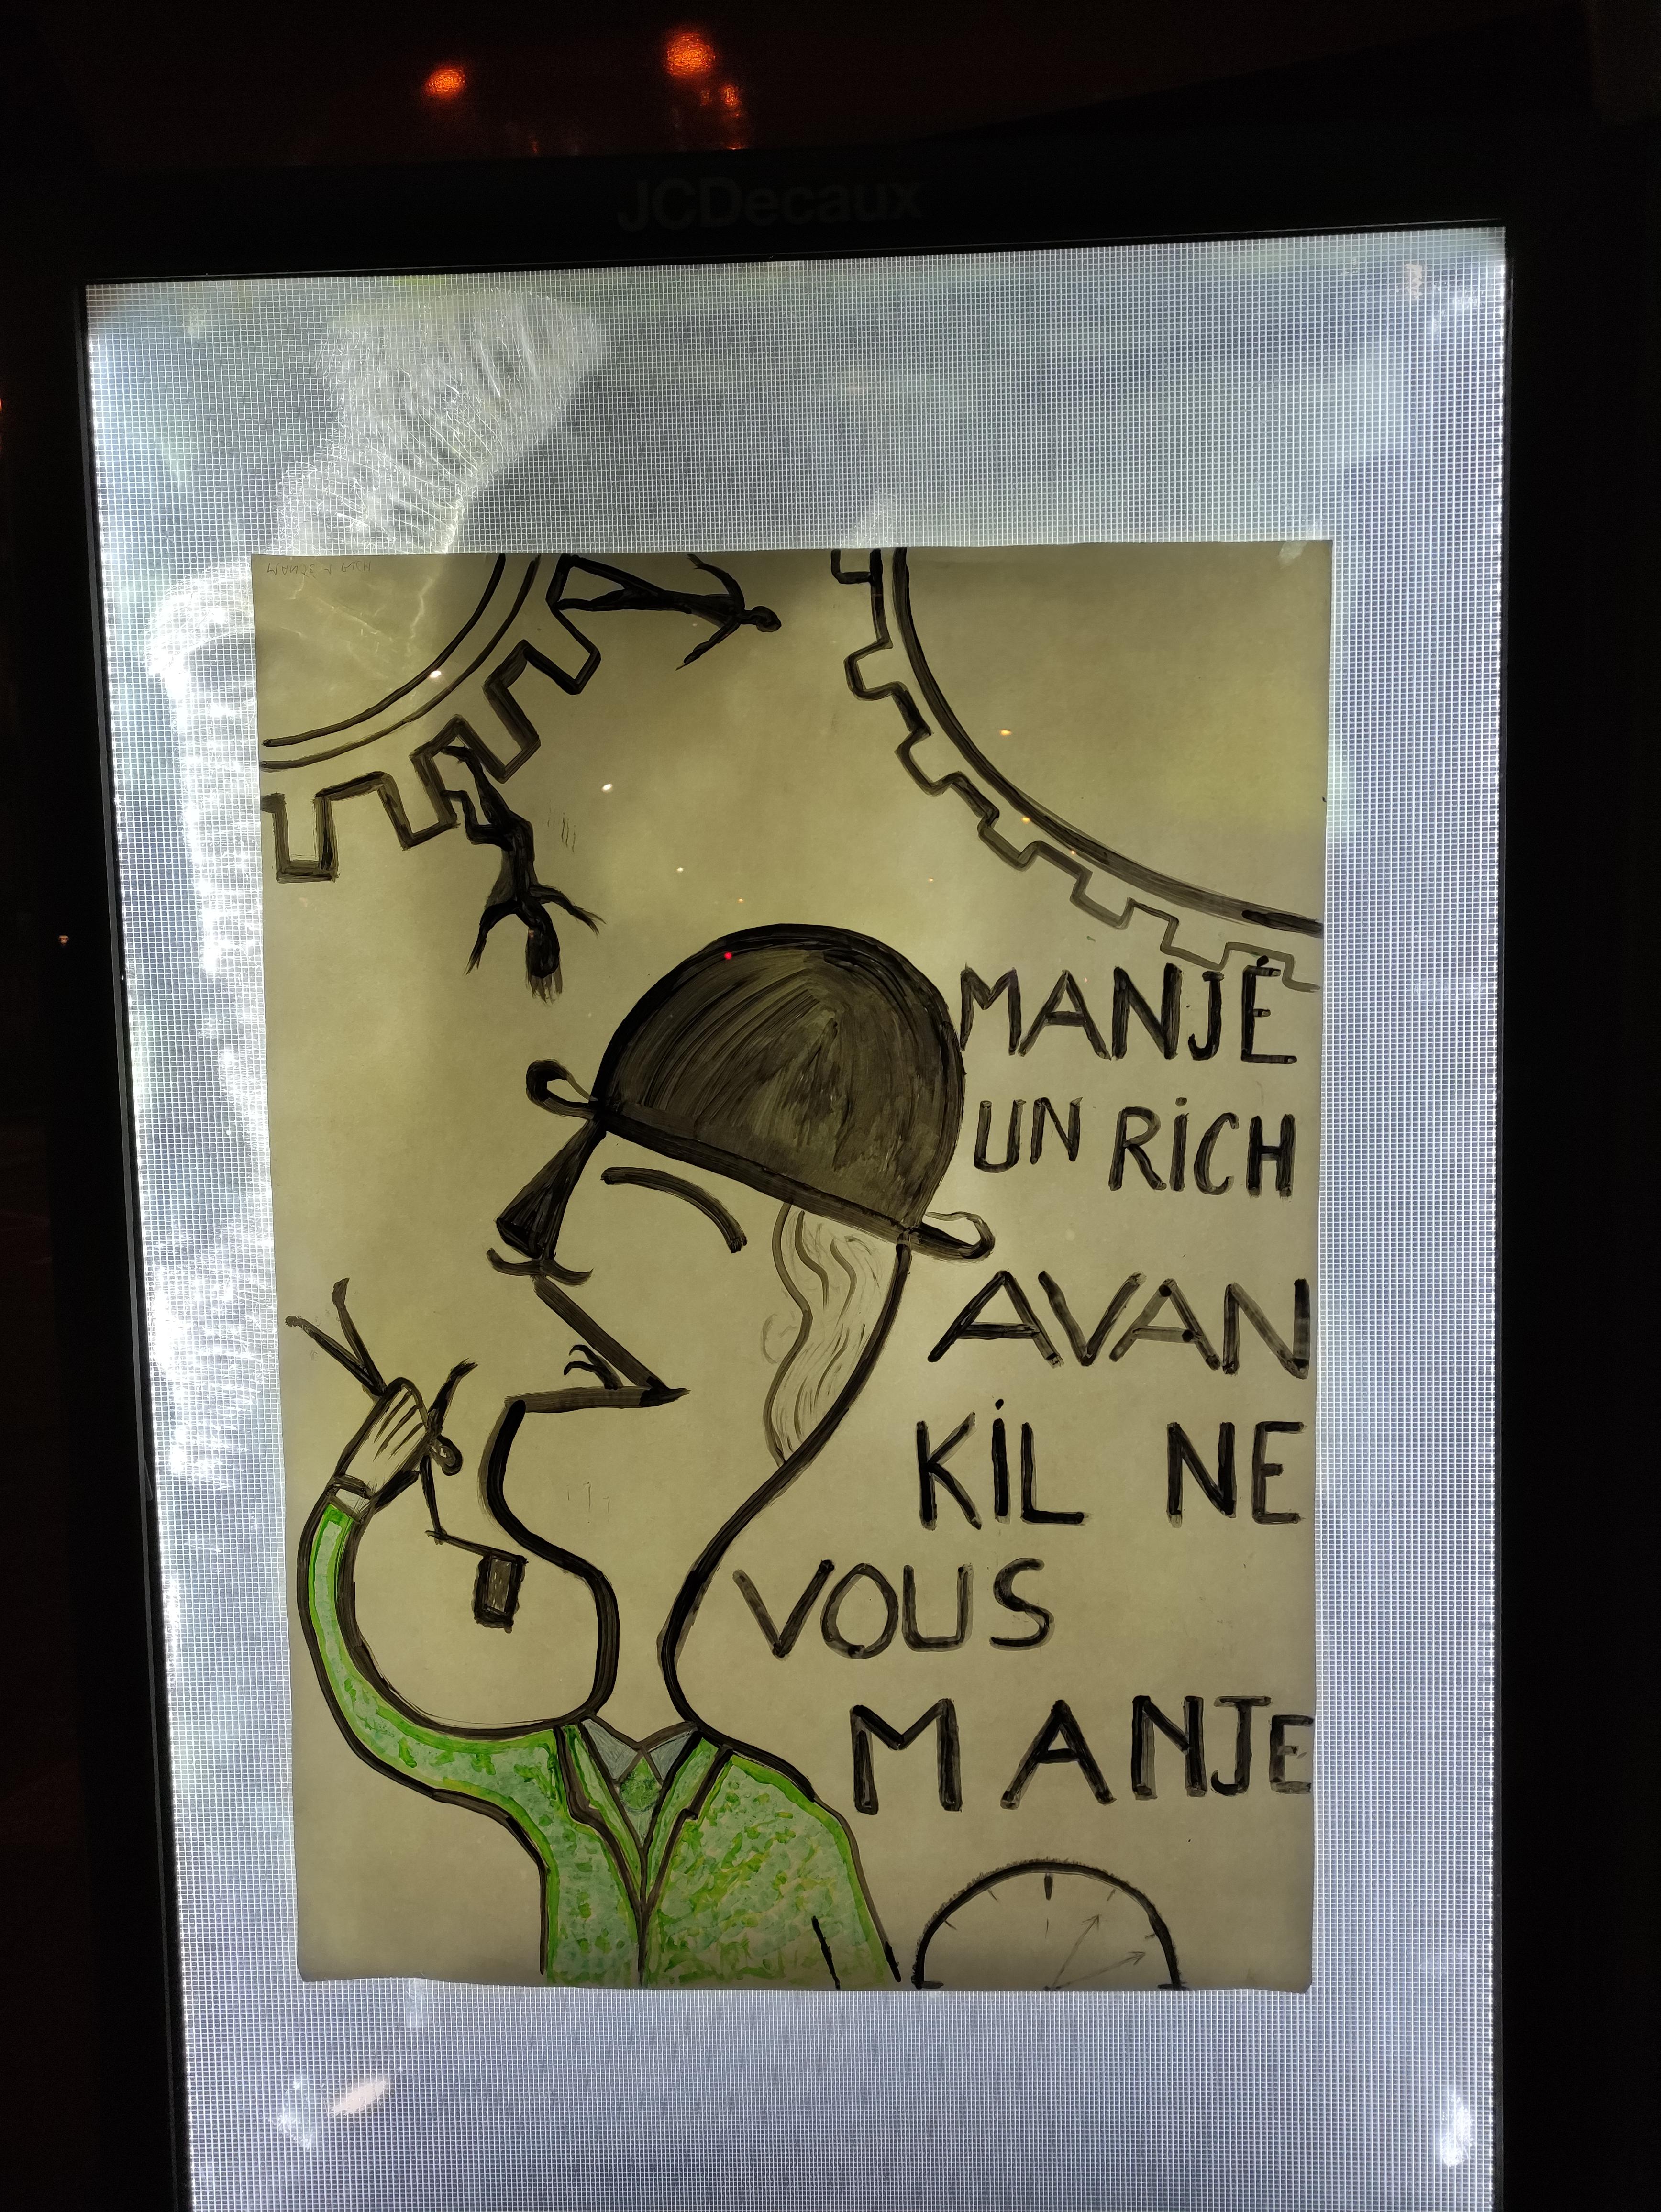 JCDecaux
MANJÉ
UN RiCH
AVAN
KiL NE
VOUS
MANJE